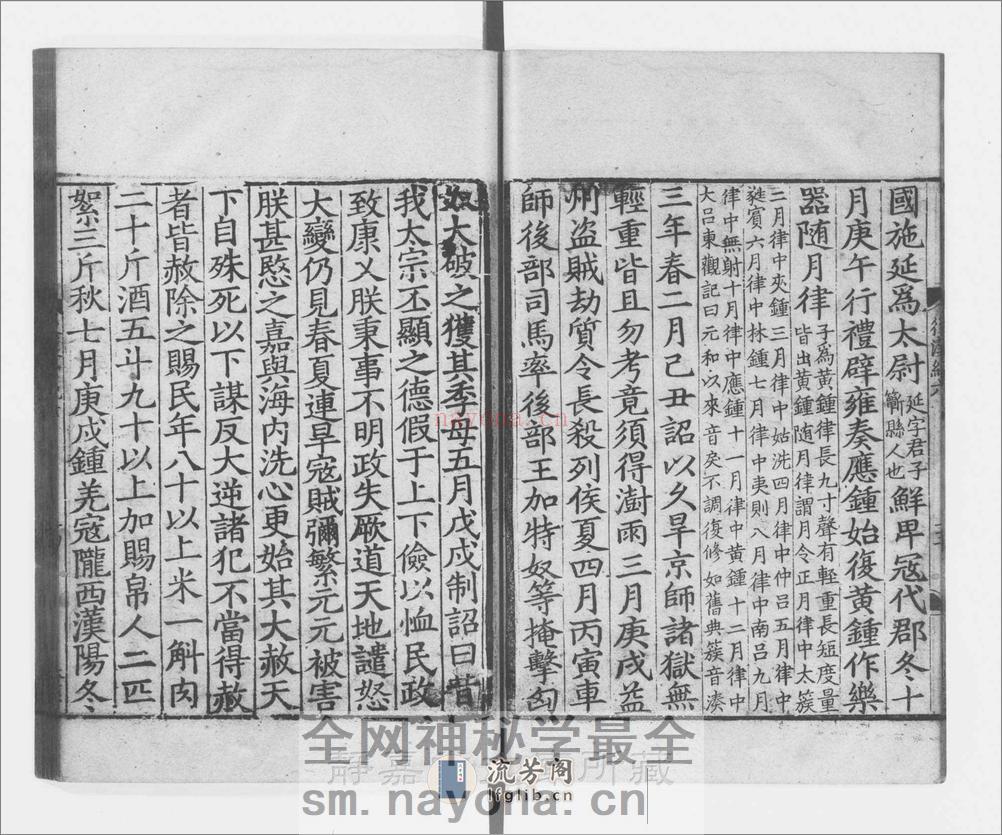 國施延爲太尉延字君子蘄縣人也鮮卑寇代郡冬十
月庚午行禮辟雍奏應鍾始復黃鍾作樂
器随月律子爲黃鍾律長九寸聲有輕重長短度量
皆出黃鍾随月律謂月令正月律中太簇
二月律中夾鍾三月律中姑洗四月律中仲吕五月律中
蕤賓六月律中林鍾七月律中夷則八月律中南吕九月
律中無射十月律中應鍾十一月律中黃鍾十二月律中
大吕東觀記曰元和以來音戾不調復修如舊典簇音湊
三年春二月己丑詔以久旱京師諸獄無
輕重皆且勿考竟須得澍雨三月庚戌益
州盜賊劫質令長殺列侯夏四月丙寅車
師後部司馬率後部王加特奴等掩擊匈
奴大破之獲其季母五月戊戌制詔曰昔
我太宗丕顯之德假于上下儉以恤民政
致康乂朕秉事不明政失厥道天地譴怒
大變仍見春夏連旱寇賊彌繁元元被害
朕甚愍之嘉與海内洗心更始其大赦天
下自殊死以下謀反大逆諸犯不當得赦
者皆赦除之賜民年八十以上米一斛肉
二十斤酒五斗九十以上加賜帛人二匹
絮三斤秋七月庚戌鍾羌寇隴西漢陽冬
後漢紀六
nayona.cn
全网神秘学最全
静嘉
所藏
流芳阁
lfglib.cn
sm.nayona.cn